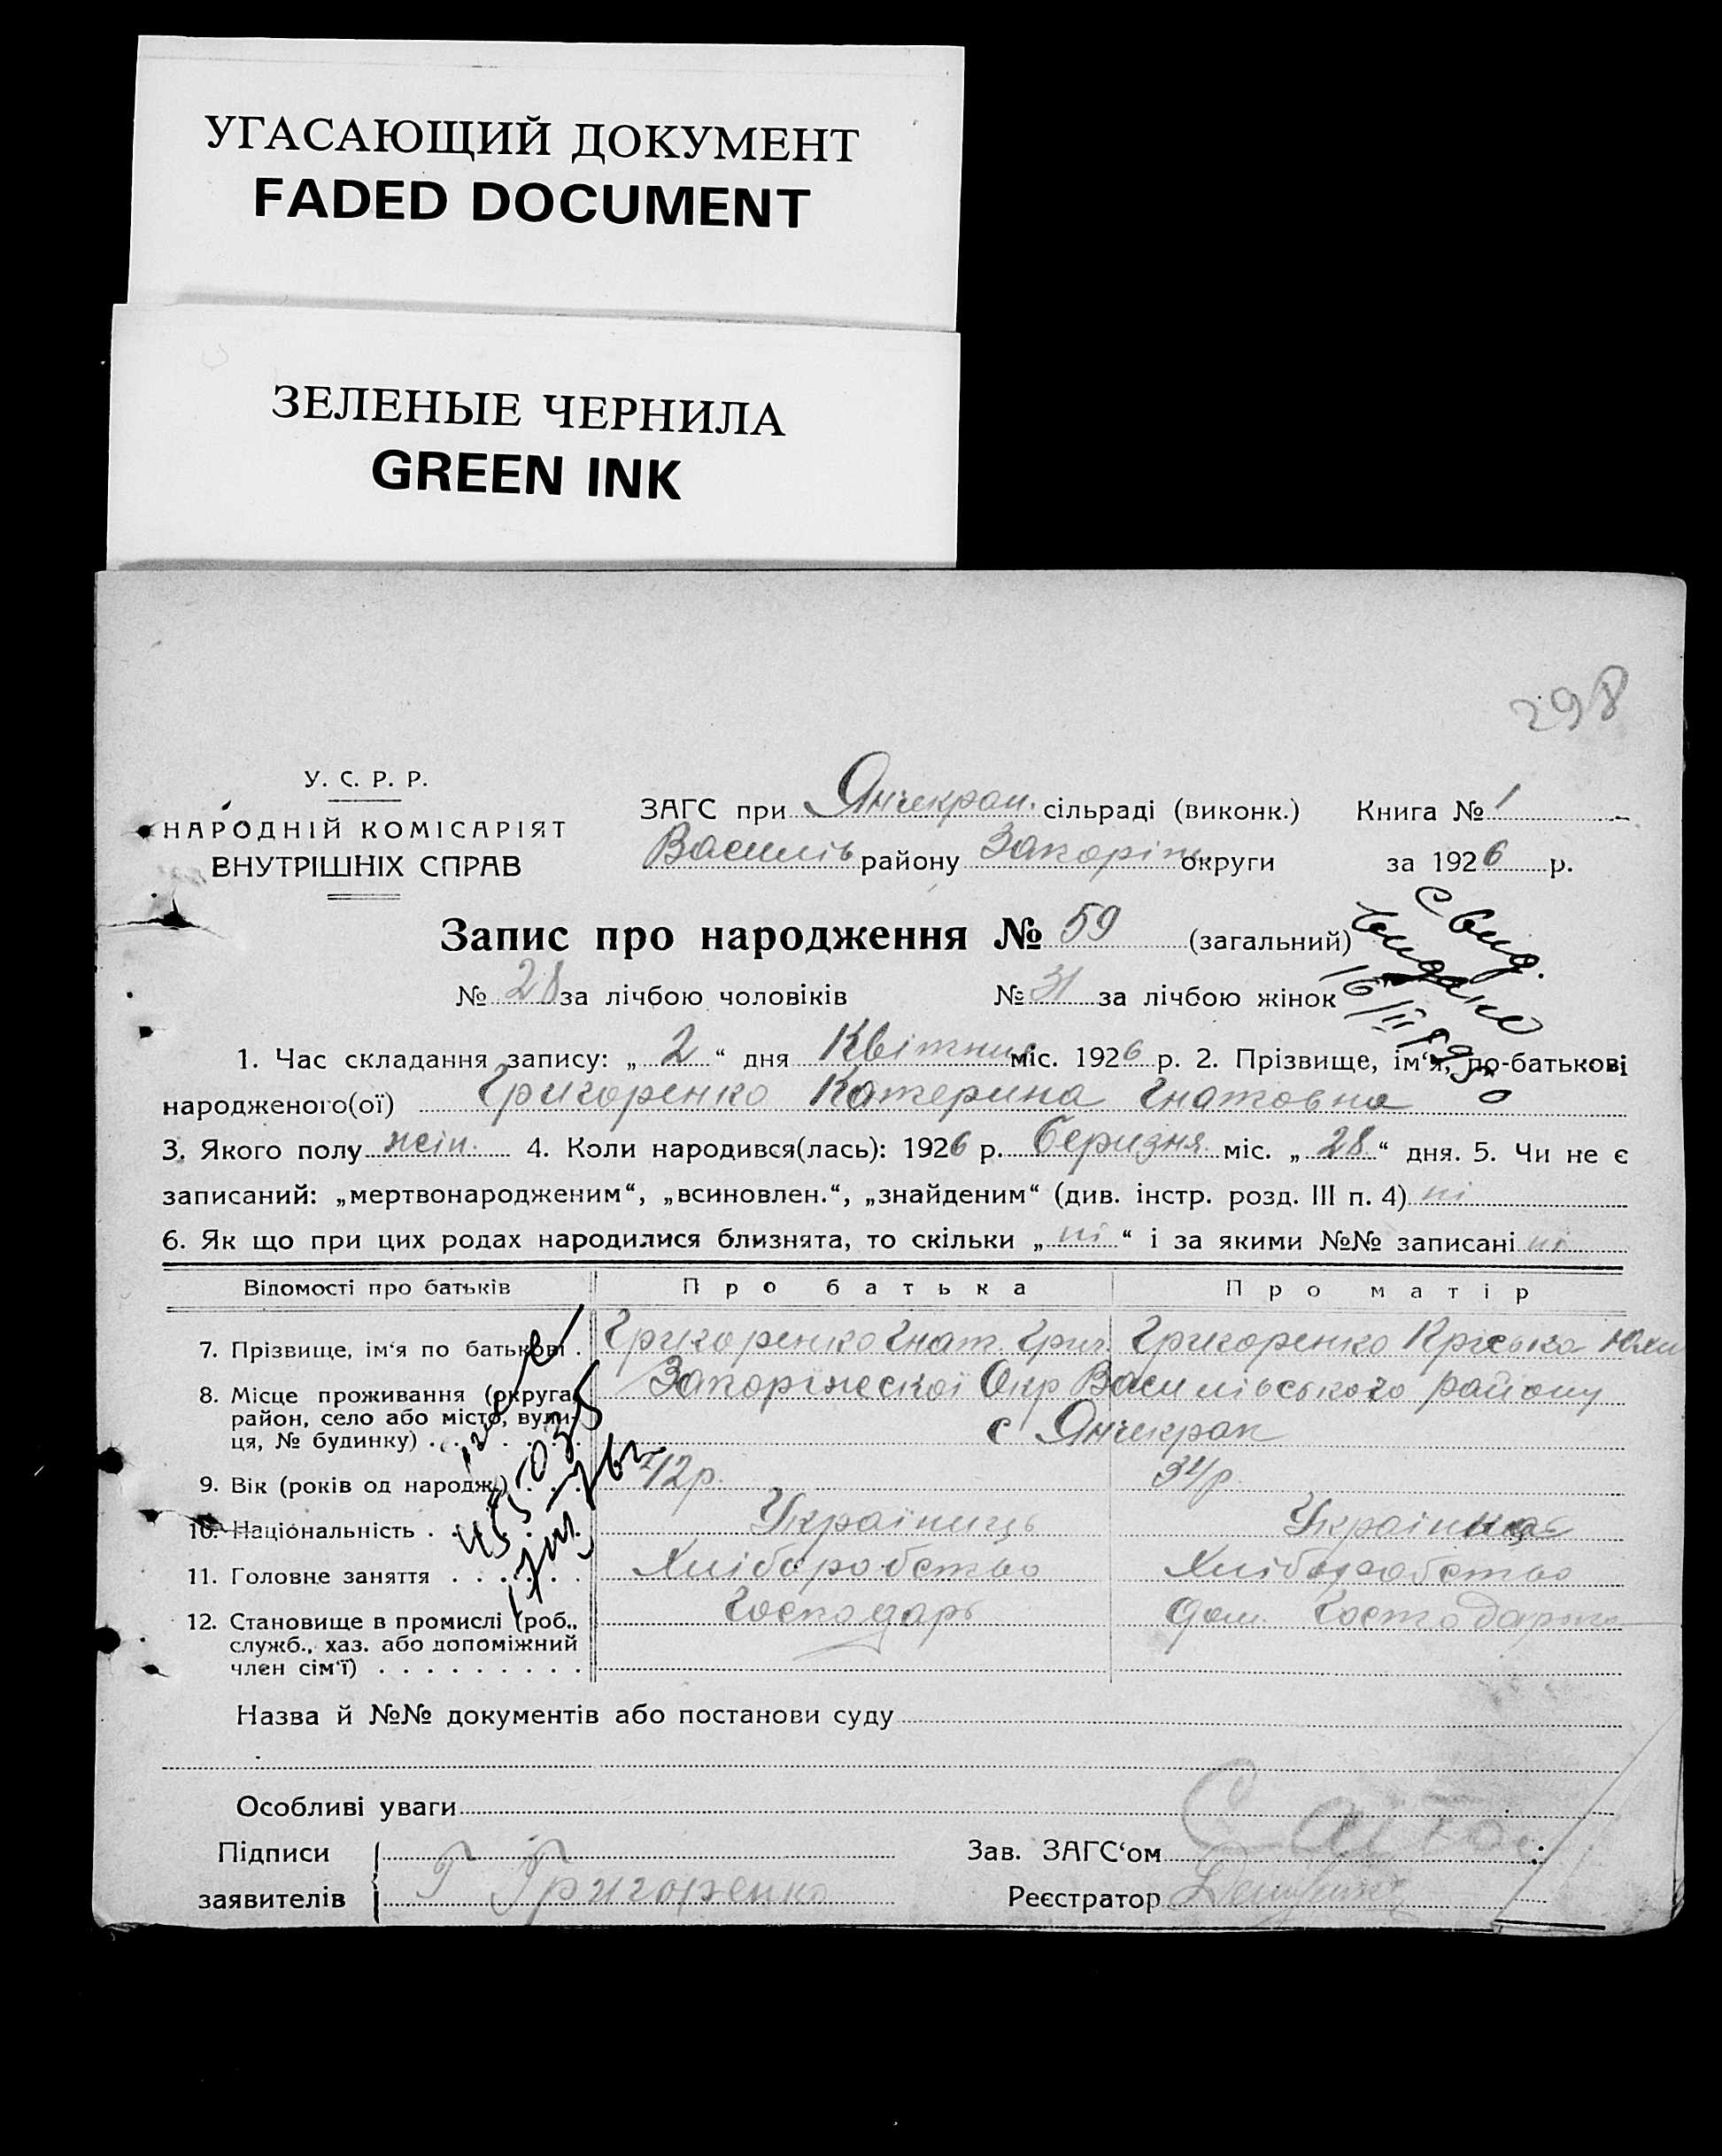 УГАСАЮЩИЙ ДОКУМЕНТ
FADED DOCUMENT
ЗЕЛЕНЫЕ ЧЕРНИЛА
GREEN INK
298
У. С. Р. Р.
НАРОДНІЙ КОМІСАРІЯТ
ВНУТРІШНІХ СПРАВ
ЗАГС при Янчекрак. сільраді (виконк.) Книга № 1
Василів району Запоріж округи за 1926 р.
Запис про народження № 59 (загальний)
№ 28 за лічбою чоловіків № 31 за лічбою жінок
С вид.
видано
16/II 1950
1. Час складання запису: „ 2 “ дня Квітня міс. 1926 р. 2. Прізвище, ім‘я, по-батькові
народженого(ої) Григоренко Катерина Гнатовна
3. Якого полу жін. 4. Коли народився(лась): 1926 р. березня міс. „ 28 “ дня. 5. Чи не є
записаний: „мертвонародженим“, „всиновлен.“, „знайденим“ (див. інстр. розд. III п. 4) ні
6. Як що при цих родах народилися близнята, то скільки „ ні “ і за якими №№ записані ні
Відомості про батьків Про батька Про матір
7. Прізвище, ім‘я по батькові . Григоренко Гнат Григ. Григоренко Пріська Юхи
8. Місце проживання (округа, район, село або місто, вули-
ця, № будинку) . . . . . Запоріжескої Окр Василівського району
с Янчекрак
9. Вік (років од народж.) . . . 42р. 34р.
10. Національність . . . . . Українець Українка
11. Головне заняття . . . . . Хліборобство Хліборобство
12. Становище в промислі (роб., служб., хаз. або допоміжний
член сім‘ї) . . . . . . . . . Господарь Дом. Господарка
Назва й №№ документів або постанови суду
Особливі уваги
Підписи
заявителів Г Григоренко
Зав. ЗАГС‘ом
Реєстратор